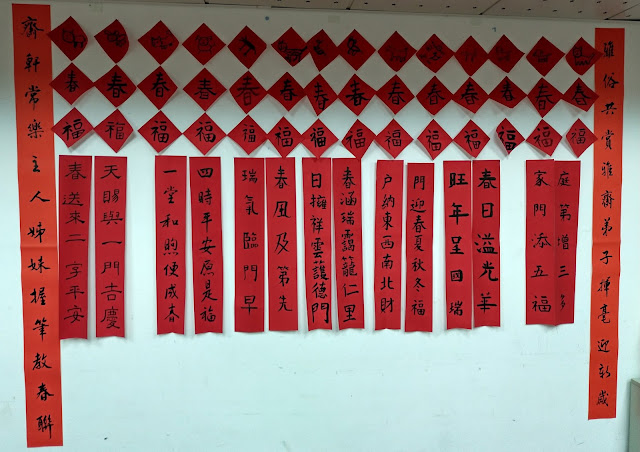 雅俗共賞雅齋弟子揮毫迎新歲
春 春 春 春 春 春 春 春 春 春 春 春 春 春
福 福 福 福 福 福 福 福 福 福 福 福 福
庭第增三多
家門添五福
春日溢光華
旺年呈回瑞
門迎春夏秋冬福
戶納東西南北財
春涵瑞靄籠仁里
日擁祥雲護德門
春風及第先
瑞氣臨門早
四時平安原是福
一堂和煦便成春
天賜與一門吉慶
春送來二字平安
齋軒常樂主人姊妹握筆教春聯